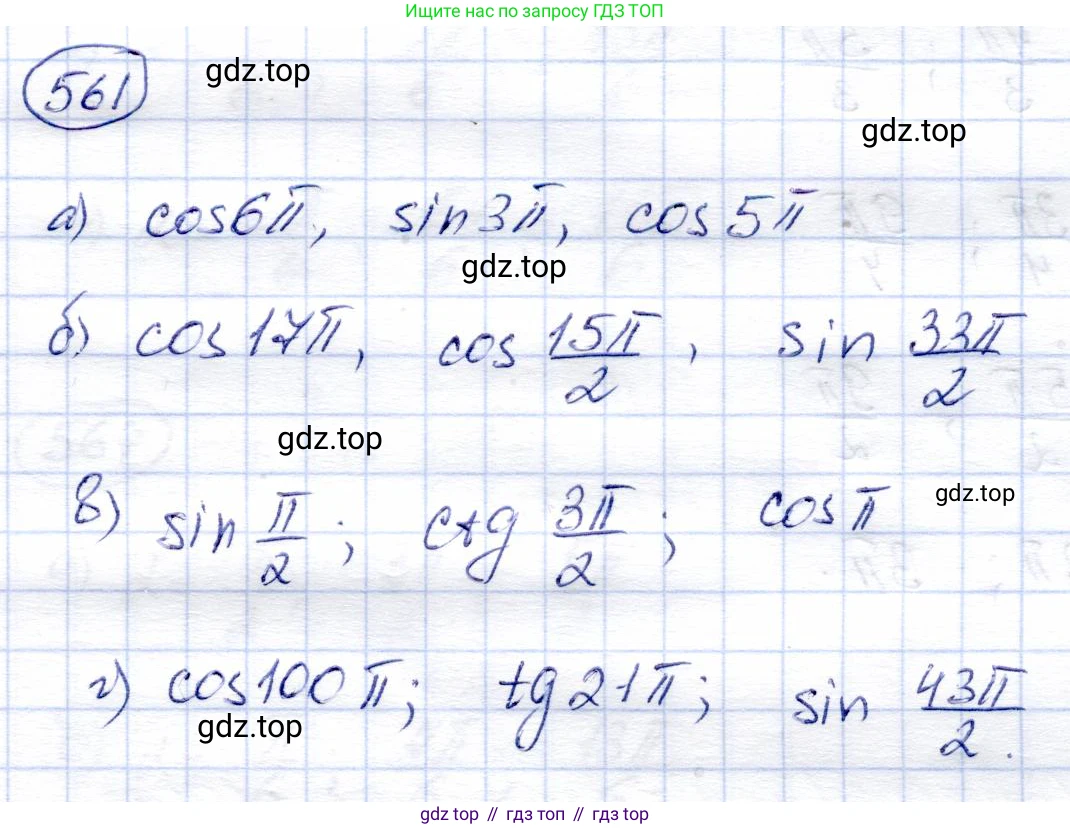 Ищите нас по запросу ГДЗ ТОП
561 gdz.top
gdz.top
а) cos6π, sin3π, cos5π
gdz.top
б) cos17π, cos 15π/2, sin 33π/2
gdz.top
в) sin π/2; ctg 3π/2; cosπ gdz.top
г) cos100π; tg21π; sin 43π/2.
gdz.top
gdz top // гдз топ // gdz top // гдз топ